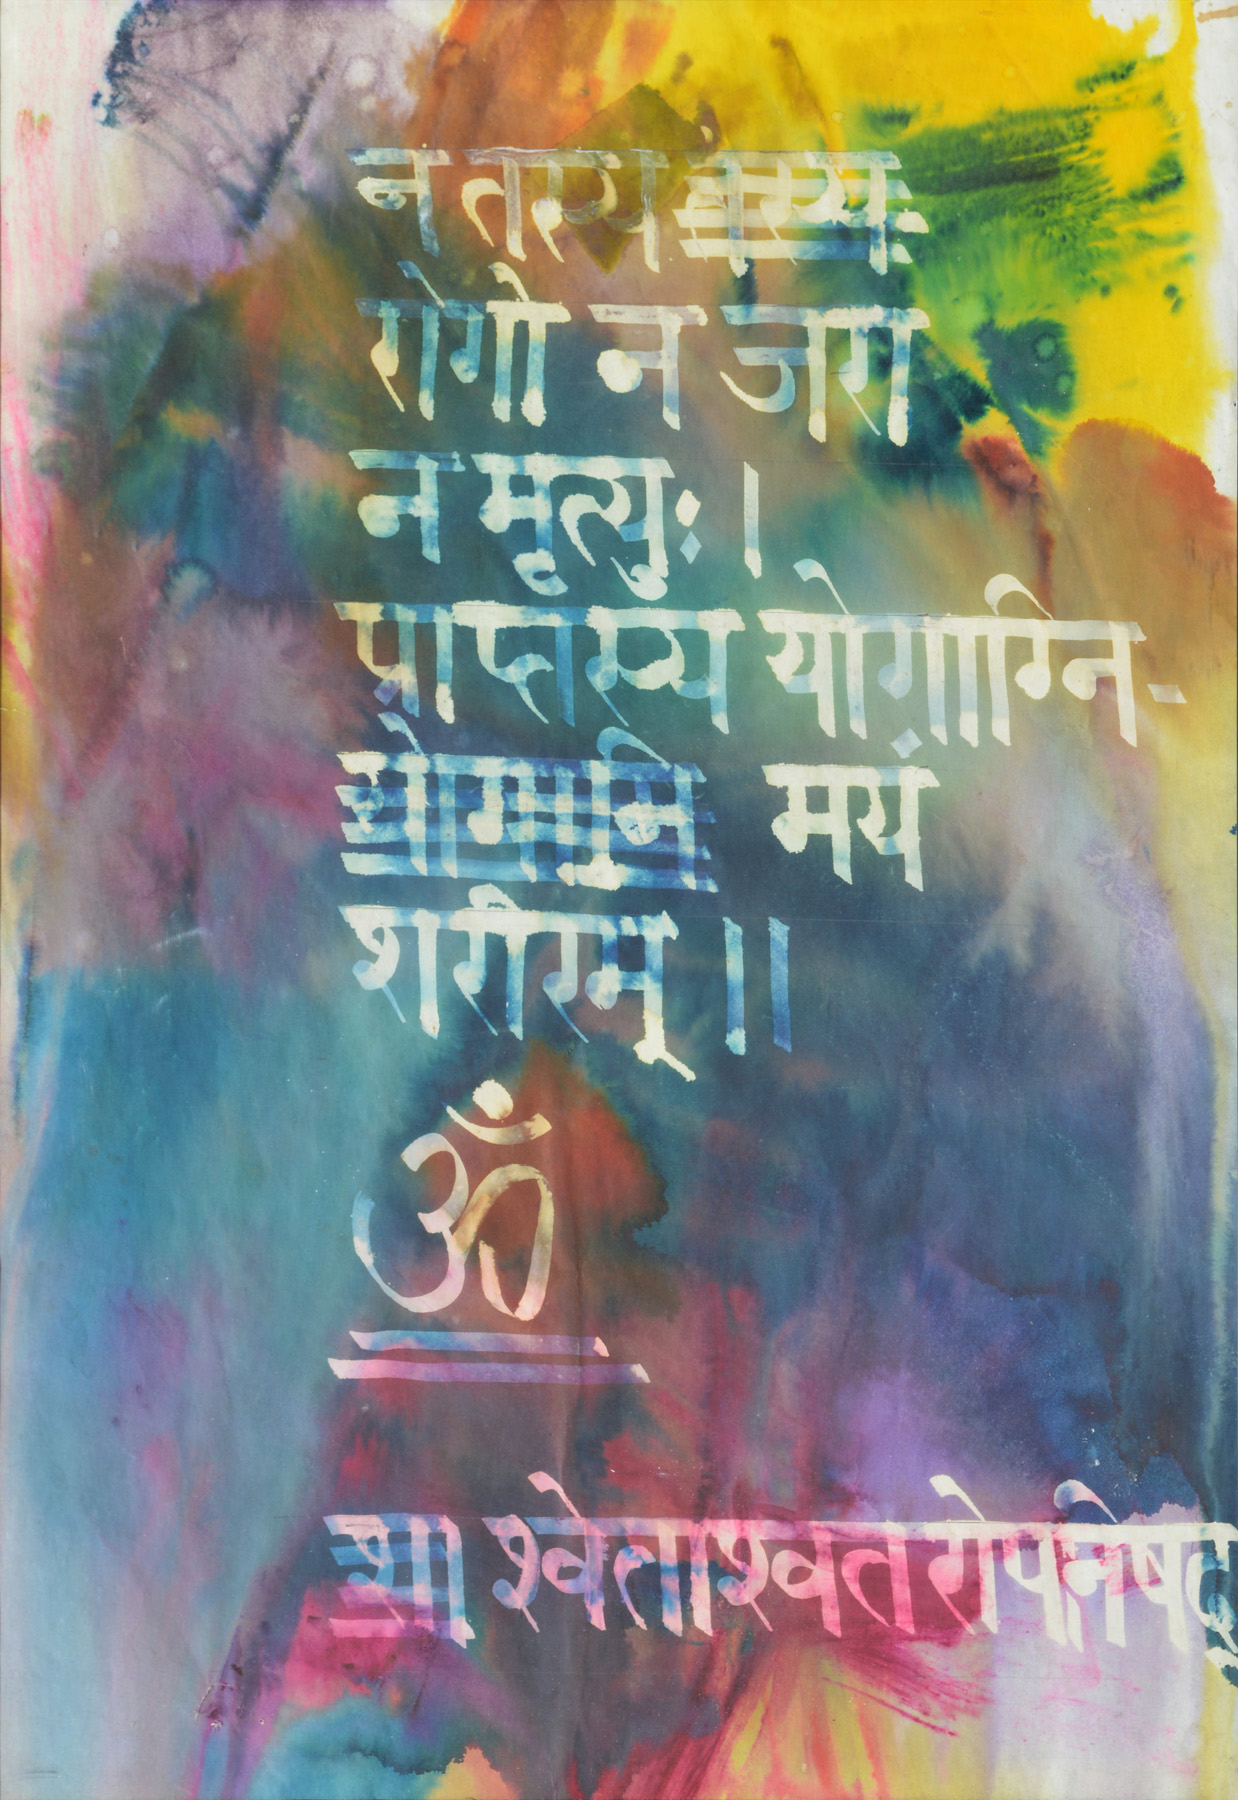 न तस्य
रोगो न जरा
न मृत्युः ।
प्राप्तस्य योगाग्नि-
मयं
शरीरम् ।।
ॐ
श्वेताश्वतरोपनिषद्